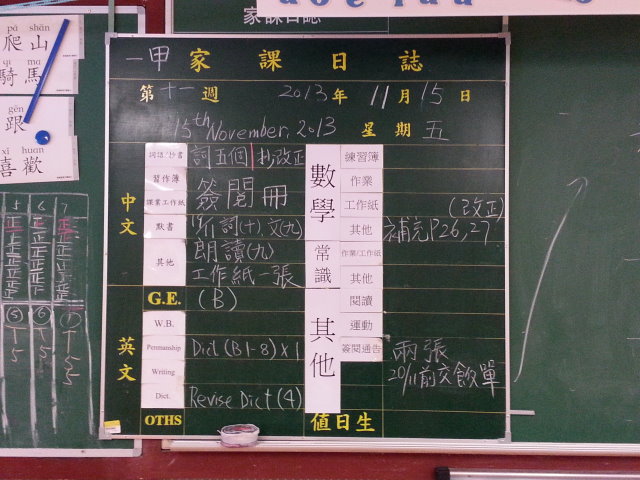 家課日誌
pá shān
爬山
qí mǎ
騎馬
gēn
跟
xǐ huān
喜歡
一甲家課日誌
第十一週 2013年 11月15日
15th November, 2013 星期五
中文
詞語/抄書 詞五個 抄改正
習作簿
課業工作紙 簽閱冊
默書 詞(十), 文(九)
其他 朗讀(九)
工作紙一張
G.E. (B)
英文
W.B.
Penmanship Dict (B1-8) x 1
Writing
Dict. Revise Dict (4)
OTHS
數學
練習簿
作業
工作紙 (改正)
其他 補充P.26, 27
常識
作業/工作紙
其他
其他
閱讀
運動
簽閱通告 兩張
20/11前交飯單
值日生
5 6 7
正 正 正
正 正 正
正 正 正
正 正 正
⑤ ⑥ ⑦